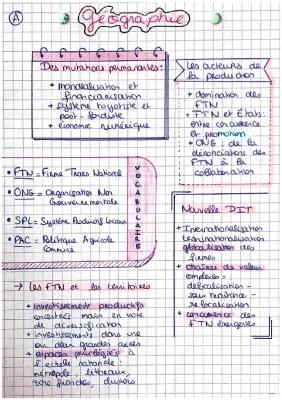 A
Géographie
Des mutations permanentes :
+ mondialisation et
financiarisation
+ système toyotiste et
post-fordiste
+ économie numérique
Les acteurs de
la production
+ domination des
FTN
+ FTN et Etats :
entre concurrence
et promotion
+ ONG : de la
dénonciation des
FTN à la
collaboration
• FTN = Firme Trans Nationale
• ONG = Organisation Non
Gouvernementale
• SPL = Système Productif Locaux
• PAC = Politique Agricole
Commune
VOCABULAIRE
Nouvelle DIT
+ Internationalisation
transnationalisation
globalisation des
firmes
+ chaînes de valeur
complexes :
délocalisation -
sous-traitance -
relocalisation
+ concurrence des
FTN émergées
→ les FTN et les territoires
+ investissements productifs
concentrés mais en voie
de diversification
+ investissements dans une
ou deux grandes aires
+ espaces privilégiés à
l'échelle nationale :
métropole, littoraux,
zone franches, clusters